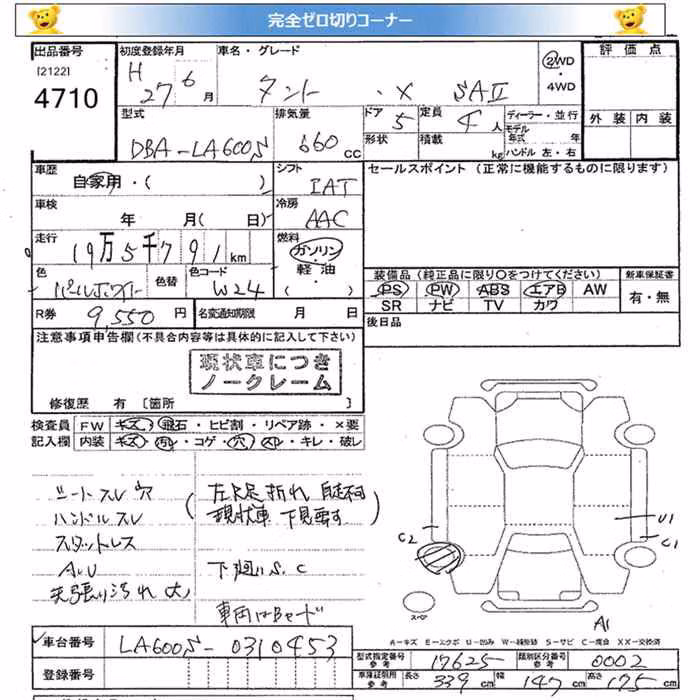 完全ゼロ切りコーナー
出品番号 初度登録年月 車名・グレード 評価点
[2122] H 27年6月 タント ・X SAⅡ ②WD・4WD
4710
型式 排気量 ドア 定員 ディーラー・並行 外装 内装
DBA-LA600S 660cc 5 4人 モデル年式 年
形状 積載 kg ハンドル 左・右
車歴 シフト セールスポイント(正常に機能するものに限ります)
自家用・( ) IAT
車検 冷房
年 月( 日) AAC
走行 燃料
19万5千791km ガソリン・軽油
色 色替 色コード ( )
パールホワイト W24
装備品(純正品に限り○をつけてください) 新車保証書
PS PW ABS エアB AW 有・無
SR ナビ TV カワ
R券 9,550円 名変通知期限 月 日
後日品
注意事項申告欄(不具合内容等は具体的に記入して下さい)
現状車につき
ノークレーム
修復歴 有 〔箇所 〕
検査員 FW キズ・飛石・ヒビ割・リペア跡・×要
記入欄 内装 キズ・汚レ・コゲ・穴・スレ・キレ・破レ
シートスレ 穴
ハンドルスレ
スタットレス
AU
天張り汚れ大
(左R足折れ 自走不可
現状車 下見要す)
下廻りS.C
車両はBヤード
U1
C2
C1
スペア
A1
A-キズ E-エクボ U-凹み W-補修跡 S-サビ C-腐食 XX-交換済
車台番号 LA600S-0310453
登録番号
型式指定番号 参考 17625 類別区分番号 参考 0002
車庫証明用 参考 長さ 339cm 幅 147cm 高さ 175cm